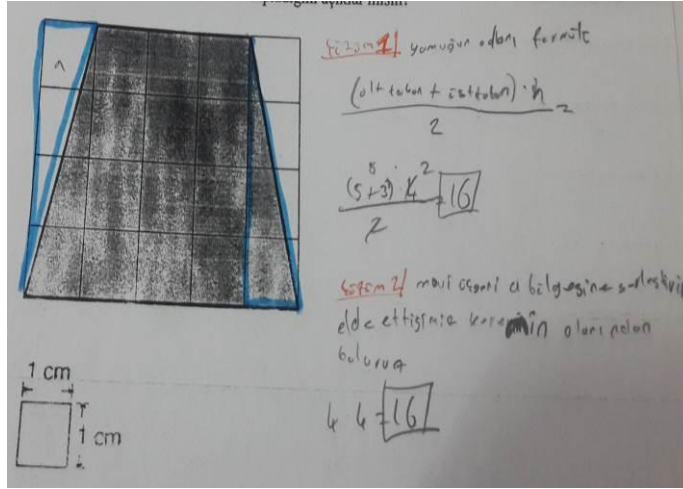 Çözüm 1/ yamuğun alanı formülü
(alt taban + üst taban) . h
2
=
(5+3) . 4
8
2
2
16
A
Çözüm 2/ mavi üçgeni a bölgesine yerleştirip
elde ettiğimiz karenin alanından
buluruz
1 cm
1 cm
4 4 = 16